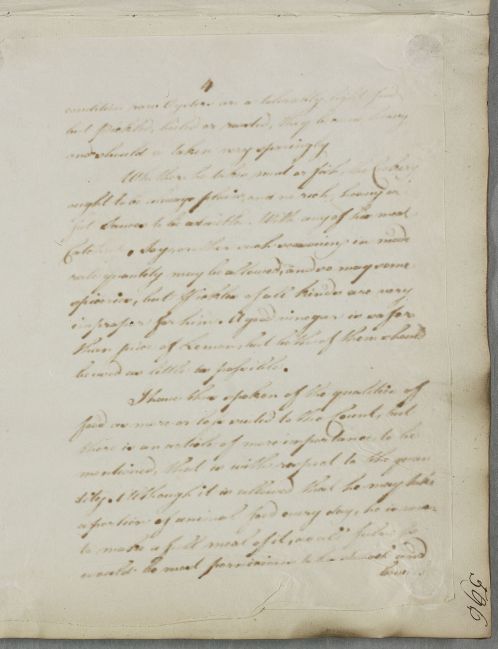 4
condition raw Oysters are a tolerably light food
but pickled, boiled or roasted, they become heavy
and should be taken very sparingly
Whether he takes meat or fish, the Cookery
ought to be always plain, and no rich, heavy or
fat Sauce to be admitted. With any of his meat
Catchup, Soy, or other such seasoning in mode
rate quantity may be allowed, and so may some
spiceries, but Pickles of all kinds are very
improper for him. A good vinegar is safer
than juice of Lemon, but both of them should
be used as little as possible.
I have thus spoken of the qualities of
food as more or less suited to the Count, but
there is an article of more importance to be
mentioned, that is with respect to the quan
tity. Although it is allowed that he may take
a portion of animal food every day, he is never
to make a full meal of it, as all
would be most pernicious to his stomach and
596